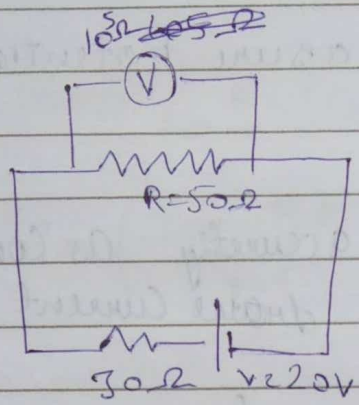 10⁵Ω
V
R=50Ω
30Ω V=20V